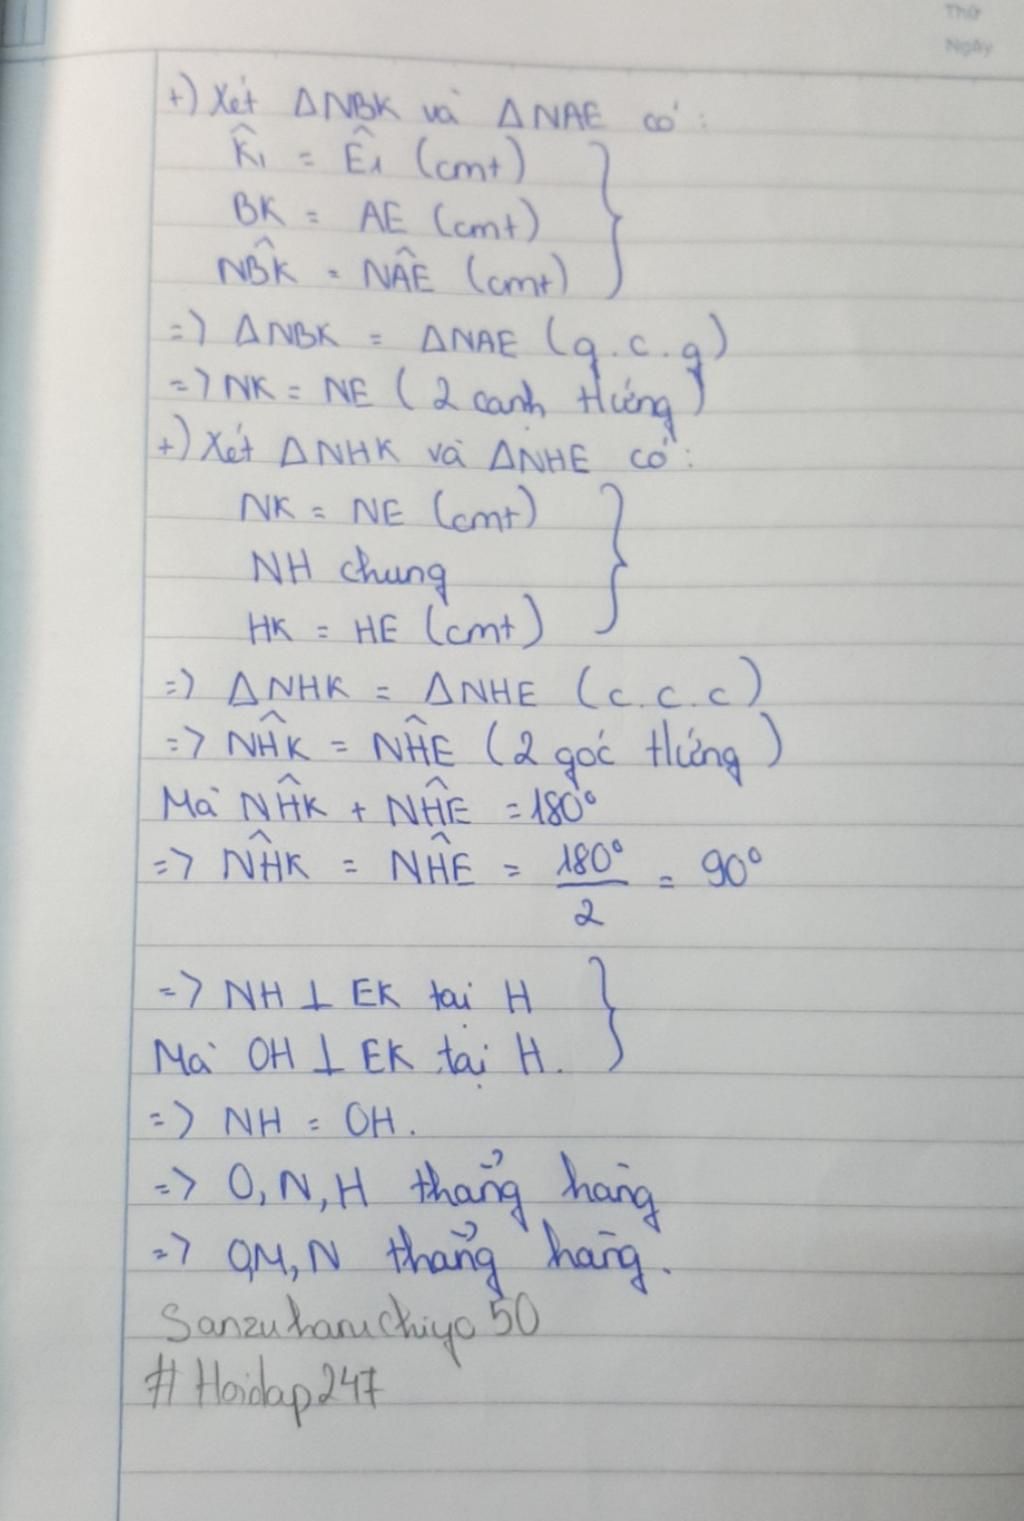 Thứ
Ngày
+) Xét ΔNBK và ΔNAE có:
K̂₁ = Ê₁ (cmt)
BK = AE (cmt)
NB̂K = NÂE (cmt)
=> ΔNBK = ΔNAE (g.c.g)
=> NK = NE (2 cạnh tứng)
+) Xét ΔNHK và ΔNHE có:
NK = NE (cmt)
NH chung
HK = HE (cmt)
=> ΔNHK = ΔNHE (c.c.c)
=> NĤK = NĤE (2 góc tứng)
Mà NĤK + NĤE = 180°
=> NĤK = NĤE = 180°/2 = 90°
=> NH ⊥ EK tại H
Mà OH ⊥ EK tại H.
=> NH = OH.
=> O, N, H thẳng hàng
=> O,M,N thẳng hàng.
Sanzuharuchiyo50
#Hoidap247